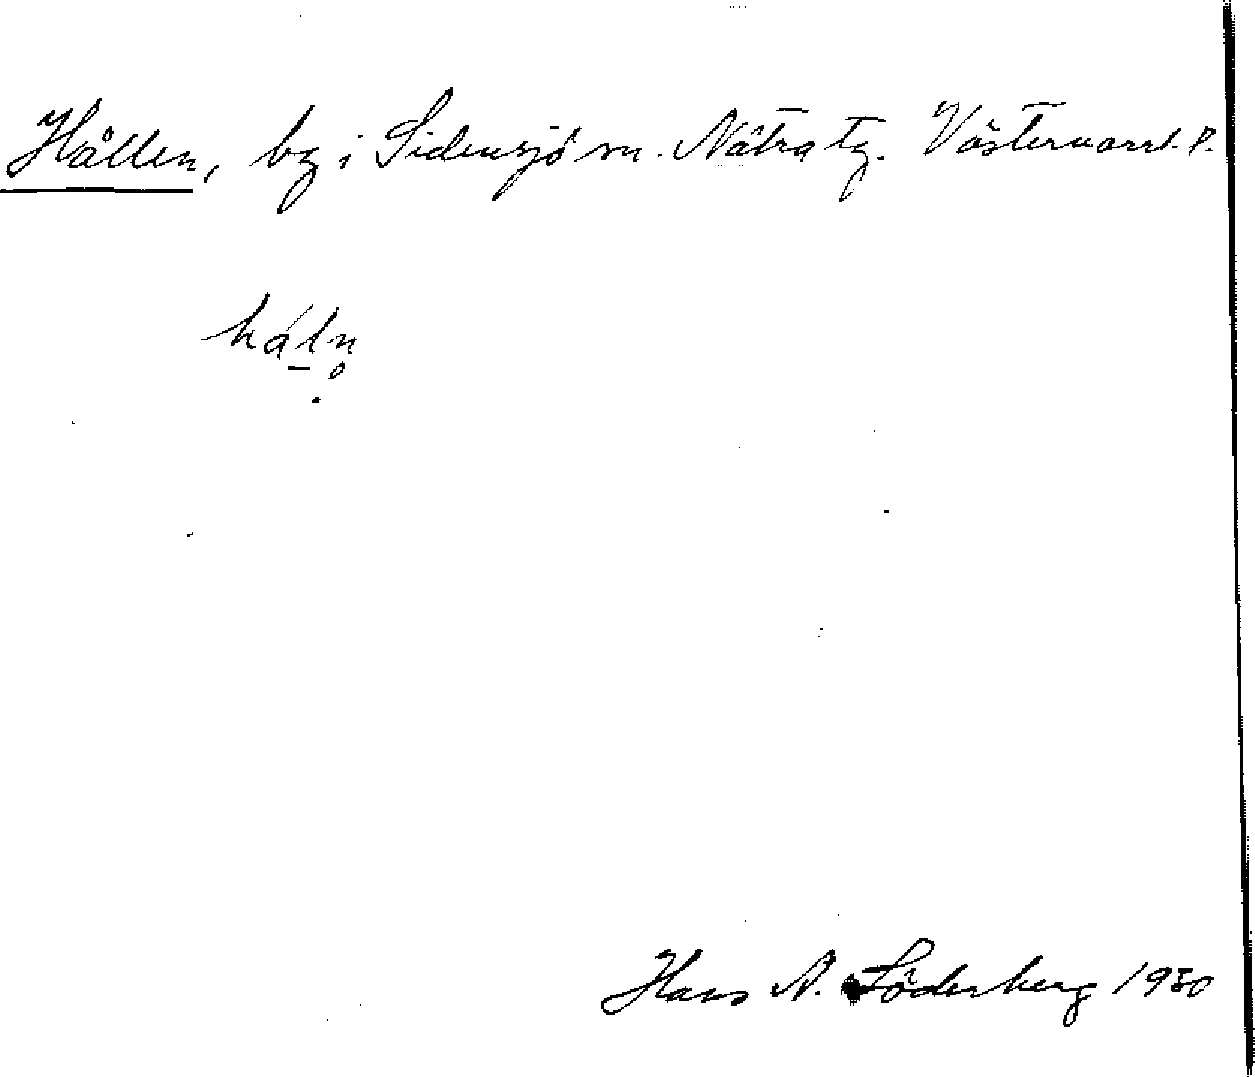 Hållen, by i Sidensjö sn. Nätra tg. Västernorrl. l.
håln
Hans A. Söderberg 1930